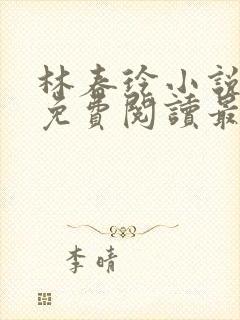 林春徐小說
免費閱讀最
李晴